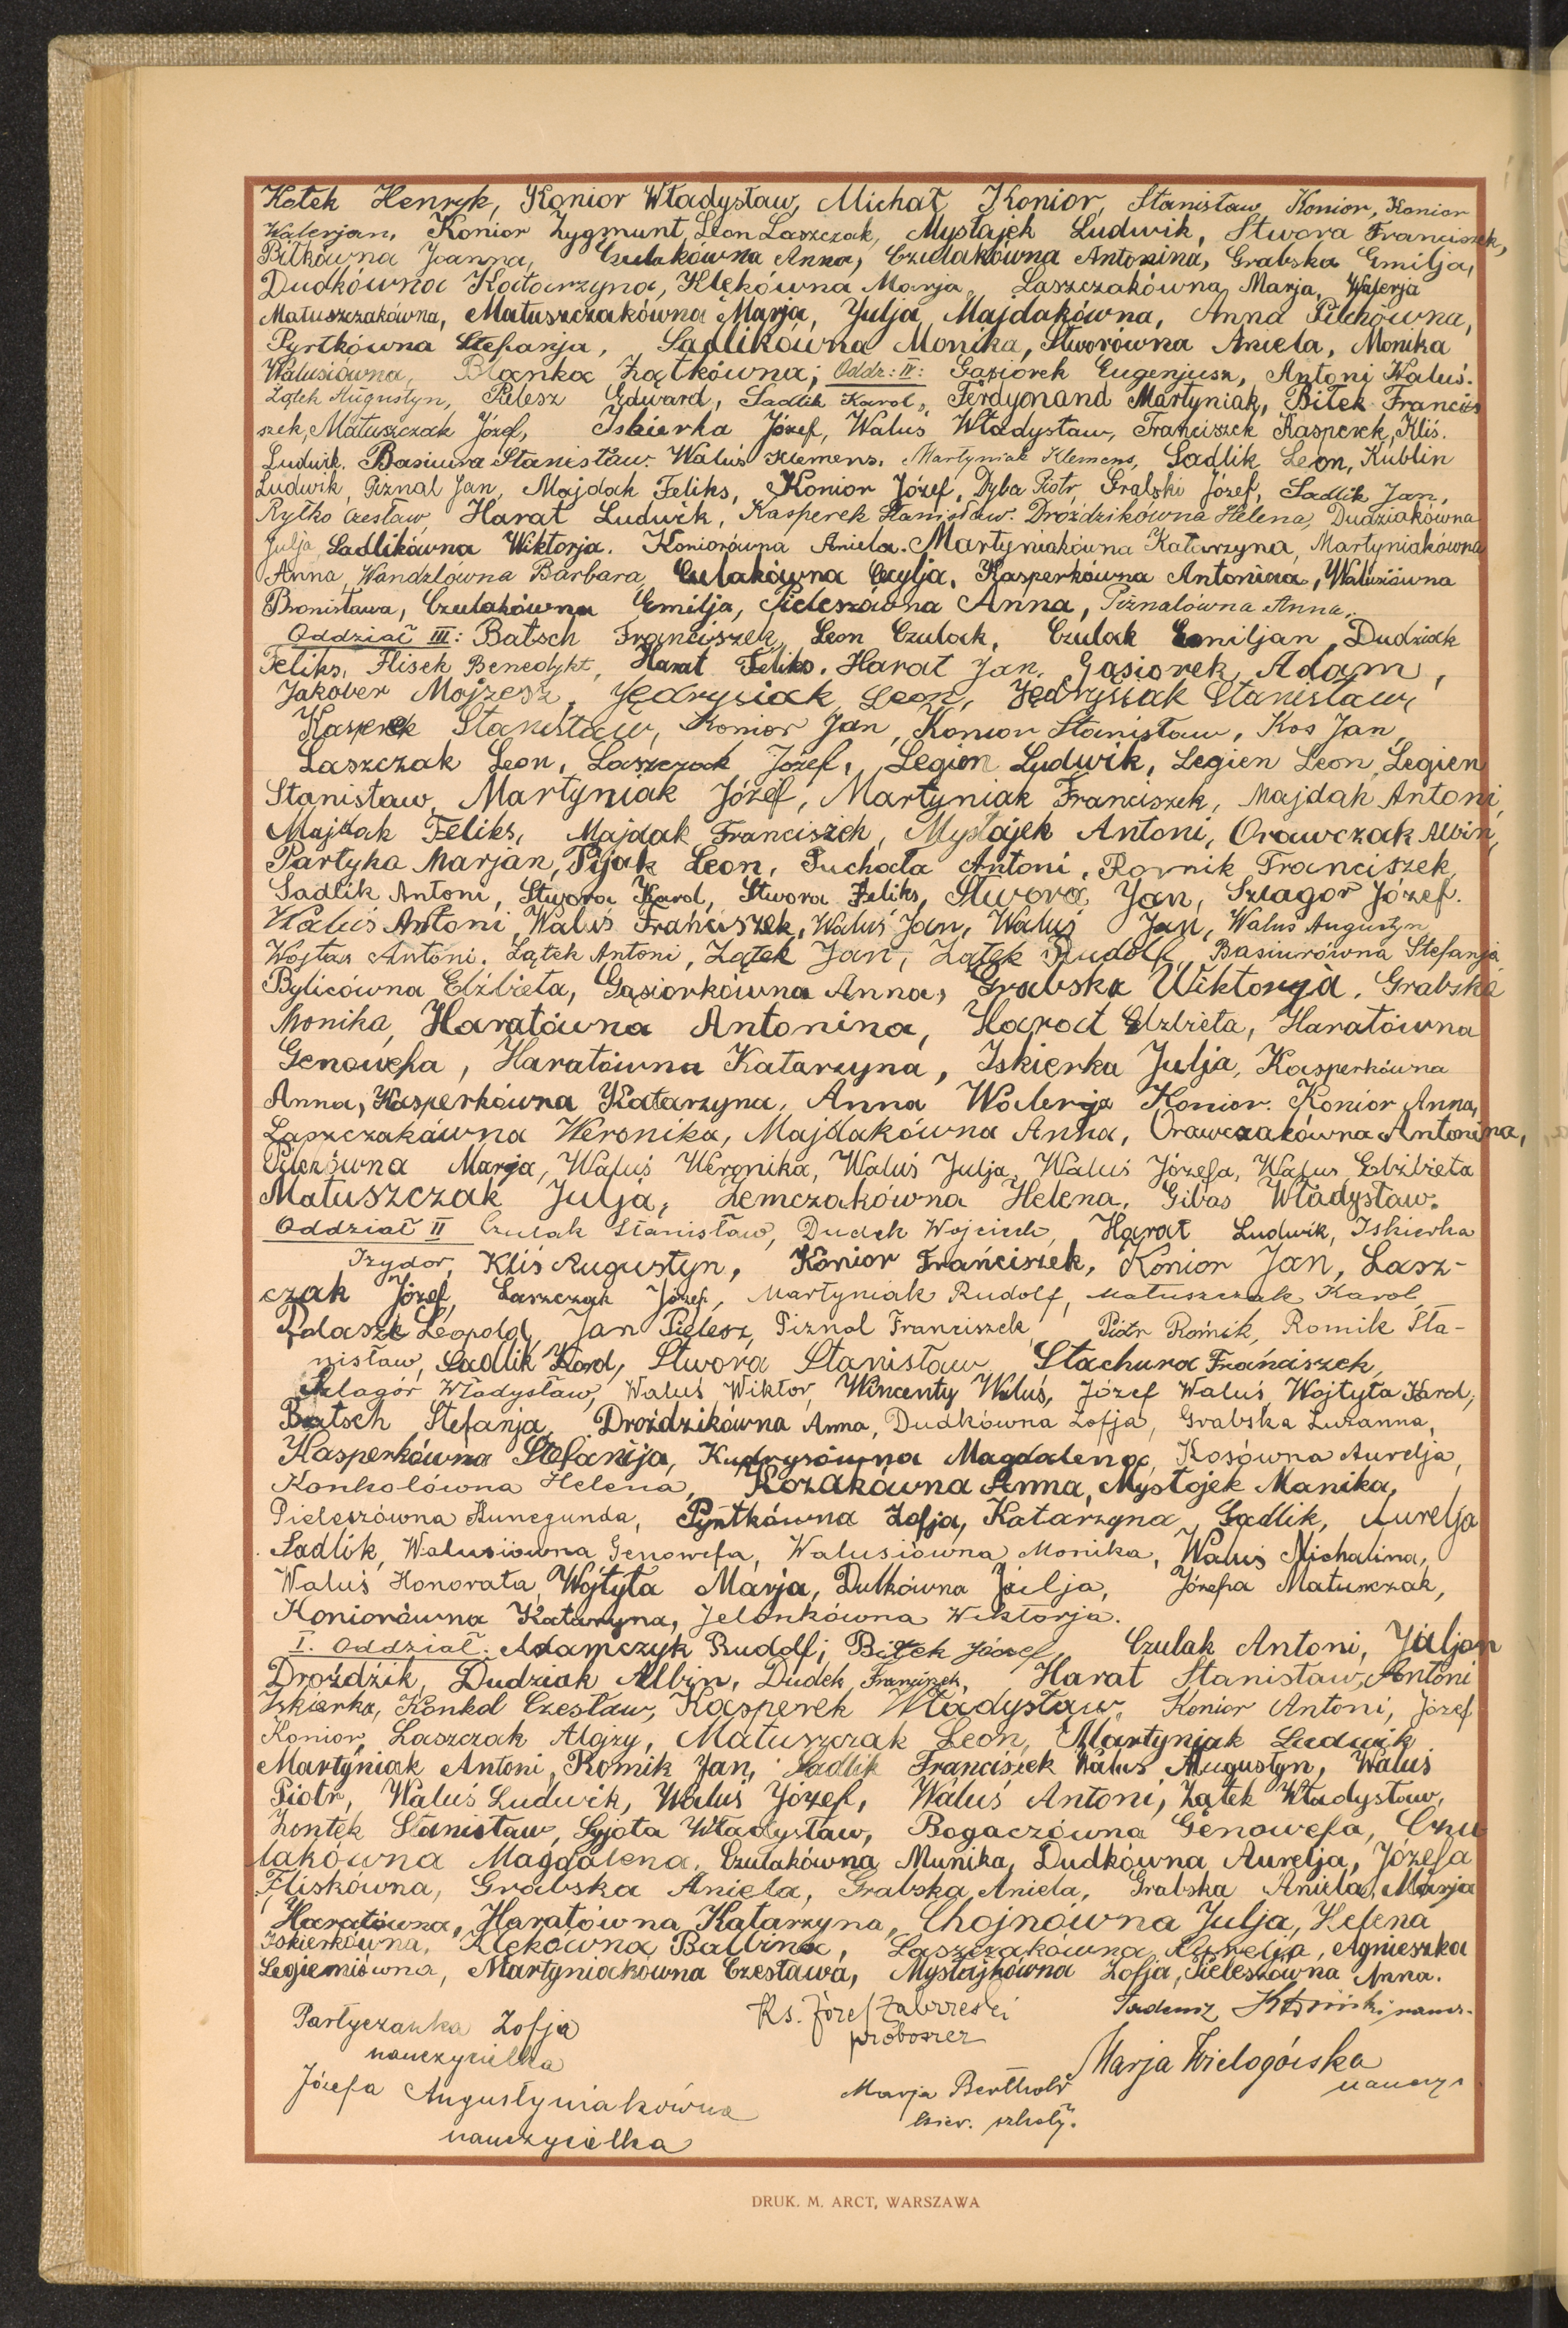 Kotek Henryk, Konior Władysław, Michał Konior, Stanisław Konior, Konior
Walerjan, Konior Zygmunt, Leon Laszczak, Mystajek Ludwik, Stwora Franciszek,
Bitkówna Joanna, Czulakówna Anna, Czulakówna Antonina, Grabska Emilja,
Dudkówna Katarzyna, Klękówna Marja, Laszczakówna Marja, Walerja
Matuszczakówna, Matuszczakówna Marja, Julja Majdakówna, Anna Pilchówna,
Pyrtkówna Stefanja, Sadlikówna Monika, Stworówna Aniela, Monika
Walusiówna, Blanka Żątkówna; Oddz: IV: Gąsiorek Eugenjusz, Antoni Waluś.
Zątek Augustyn, Pielesz Edward, Sadlik Karol, Ferdynand Martyniak, Bitek Francis
szek, Matuszczak Józef, Iskierka Józef, Waluś Władysław, Franciszek Kasperek, Kliś.
Ludwik. Basiura Stanisław. Waluś Klemens. Martyniak Klemens, Sadlik Leon, Kublin
Ludwik, Piznal Jan, Majdak Feliks, Konior Józef, Dyba Piotr, Grabski Józef, Sadlik Jan,
Ryłko Czesław, Harat Ludwik, Kasperek Stanisław. Droździkówna Helena, Dudziakówna
Julja, Sadlikówna Wiktorja. Koniorówna Aniela. Martyniakówna Katarzyna, Martyniakówna
Anna, Wandzlówna Barbara, Culakówna Cecylja, Kasperkówna Antonina, Walusiówna
Bronisława, Czulakówna Emilja, Pieleszówna Anna, Piznalówna Anna.
Oddział III: Batsch Franciszek, Leon Czulak, Czulak Emiljan, Dudziak
Feliks, Flisek Benedykt, Harat Feliks, Harat Jan, Gąsiorek Adam,
Jakober Mojżesz, Jędrysiak Leon, Jędrysiak Stanisław,
Kasperek Stanisław, Konior Jan, Konior Stanisław, Kos Jan,
Laszczak Leon, Laszczak Józef, Legien Ludwik, Legien Leon, Legien
Stanisław, Martyniak Józef, Martyniak Franciszek, Majdak Antoni,
Majdak Feliks, Majdak Franciszek, Mystajek Antoni, Orawczak Albin,
Partyka Marjan, Pijak Leon, Puchała Antoni, Rornik Franciszek,
Sadlik Antoni, Stwora Karol, Stwora Feliks, Stwora Jan, Szlagor Józef.
Waluś Antoni, Waluś Franciszek, Waluś Jan, Waluś Jan, Waluś Augustyn,
Wojtas Antoni. Zątek Antoni, Zątek Jan, Zątek Rudolf, Basiurówna Stefanja
Bylicówna Elżbieta, Gąsiorkówna Anna, Grabska Wiktorja, Grabska
Monika, Haratówna Antonina, Harat Elżbieta, Haratówna
Genowefa, Haratówna Katarzyna, Iskierka Julja, Kasperkówna
Anna, Kasperkówna Katarzyna, Anna Walerja Konior. Konior Anna,
Laszczakówna Weronika, Majdakówna Anna, Orawczakówna Antonina,
Marja, Waluś Weronika, Waluś Julja, Waluś Józefa, Waluś Elżbieta
Matuszczak Julja, Zemczakówna Helena, Gibas Władysław.
Oddział II Czulak Stanisław, Dudek Wojciech, Harat Ludwik, Iskierka
Izydor, Kliś Augustyn, Konior Franciszek, Konior Jan, Lasz-
czak Józef, Laszczak Józef, Martyniak Rudolf, Matuszczak Karol,
Leopold, Jan Pielesz, Piznal Franciszek, Piotr Romik, Romik Sta-
nisław, Sadlik Karol, Stwora Stanisław, Stachura Franciszek,
Szlagór Władysław, Waluś Wiktor, Wincenty Waluś, Józef Waluś, Wojtyła Karol,
Batsch Stefanja, Droździkówna Anna, Dudkówna Zofja, Grabska Zuzanna,
Kasperkówna Stefanija, Kudrysówna Magdalena, Kosówna Aurelja,
Konkolówna Helena, Kozakówna Anna, Mystojek Manika,
Pieleszówna Kunegunda, Pyrtkówna Zofja, Katarzyna Sadlik, Aurelja
Sadlik, Walusiówna Genowefa, Walusiówna Monika, Waluś Michalina,
Waluś Honorata, Wojtyła Marja, Dutkówna Julja, Józefa Matuszczak,
Koniorówna Katarzyna, Jelonkówna Wiktorja.
I. Oddział: Adamczyk Rudolf; Bitek Józef, Czulak Antoni, Juljan
Droździk, Dudziak Albin, Dudek Franciszek, Harat Stanisław, Antoni
Iskierka, Konkol Czesław, Kasperek Władysław, Konior Antoni, Józef
Konior, Laszczak Alojzy, Matuszczak Leon, Martyniak Ludwik
Martyniak Antoni, Romik Jan, Sadlik Franciszek Waluś Augustyn, Waluś
Piotr, Waluś Ludwik, Waluś Józef, Waluś Antoni, Zątek Władysław,
Żontek Stanisław, Syjota Władysław, Bogaczówna Genowefa, Czu
lakówna Magdalena, Czulakówna Munika, Dudkówna Aurelja, Józefa
Fliskówna, Grabska Aniela, Grabska Aniela, Grabska Aniela, Marja
Haratówna, Haratówna Katarzyna, Chojnówna Julja, Helena
Iskierkówna, Klękówna Balbina, Laszczakówna Aurelja, Agnieszka
Legieniówna, Martyniakówna Czesława, Mystajkówna Zofja, Pieleszówna Anna.
Partyczanka Zofja
nauczycielka
Ks. Józef Zabrzeski
proboszcz
Tadeusz naucz.
Marja Wielogórska
naucz.
Józefa Augustyniakówna
nauczycielka
Marja Berthold
kier. szkoły.
DRUK. M. ARCT, WARSZAWA